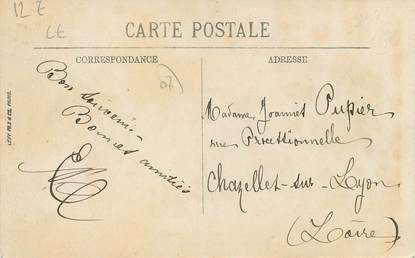 12 €
LE
CARTE POSTALE
CORRESPONDANCE
ADRESSE
07
Bon souvenir
Bonnes amitiés
Madame Joannès Pupier
rue Processionnelle
Chazelles-sur-Lyon
(Loire)
LEVY FILS & CIE, PARIS.